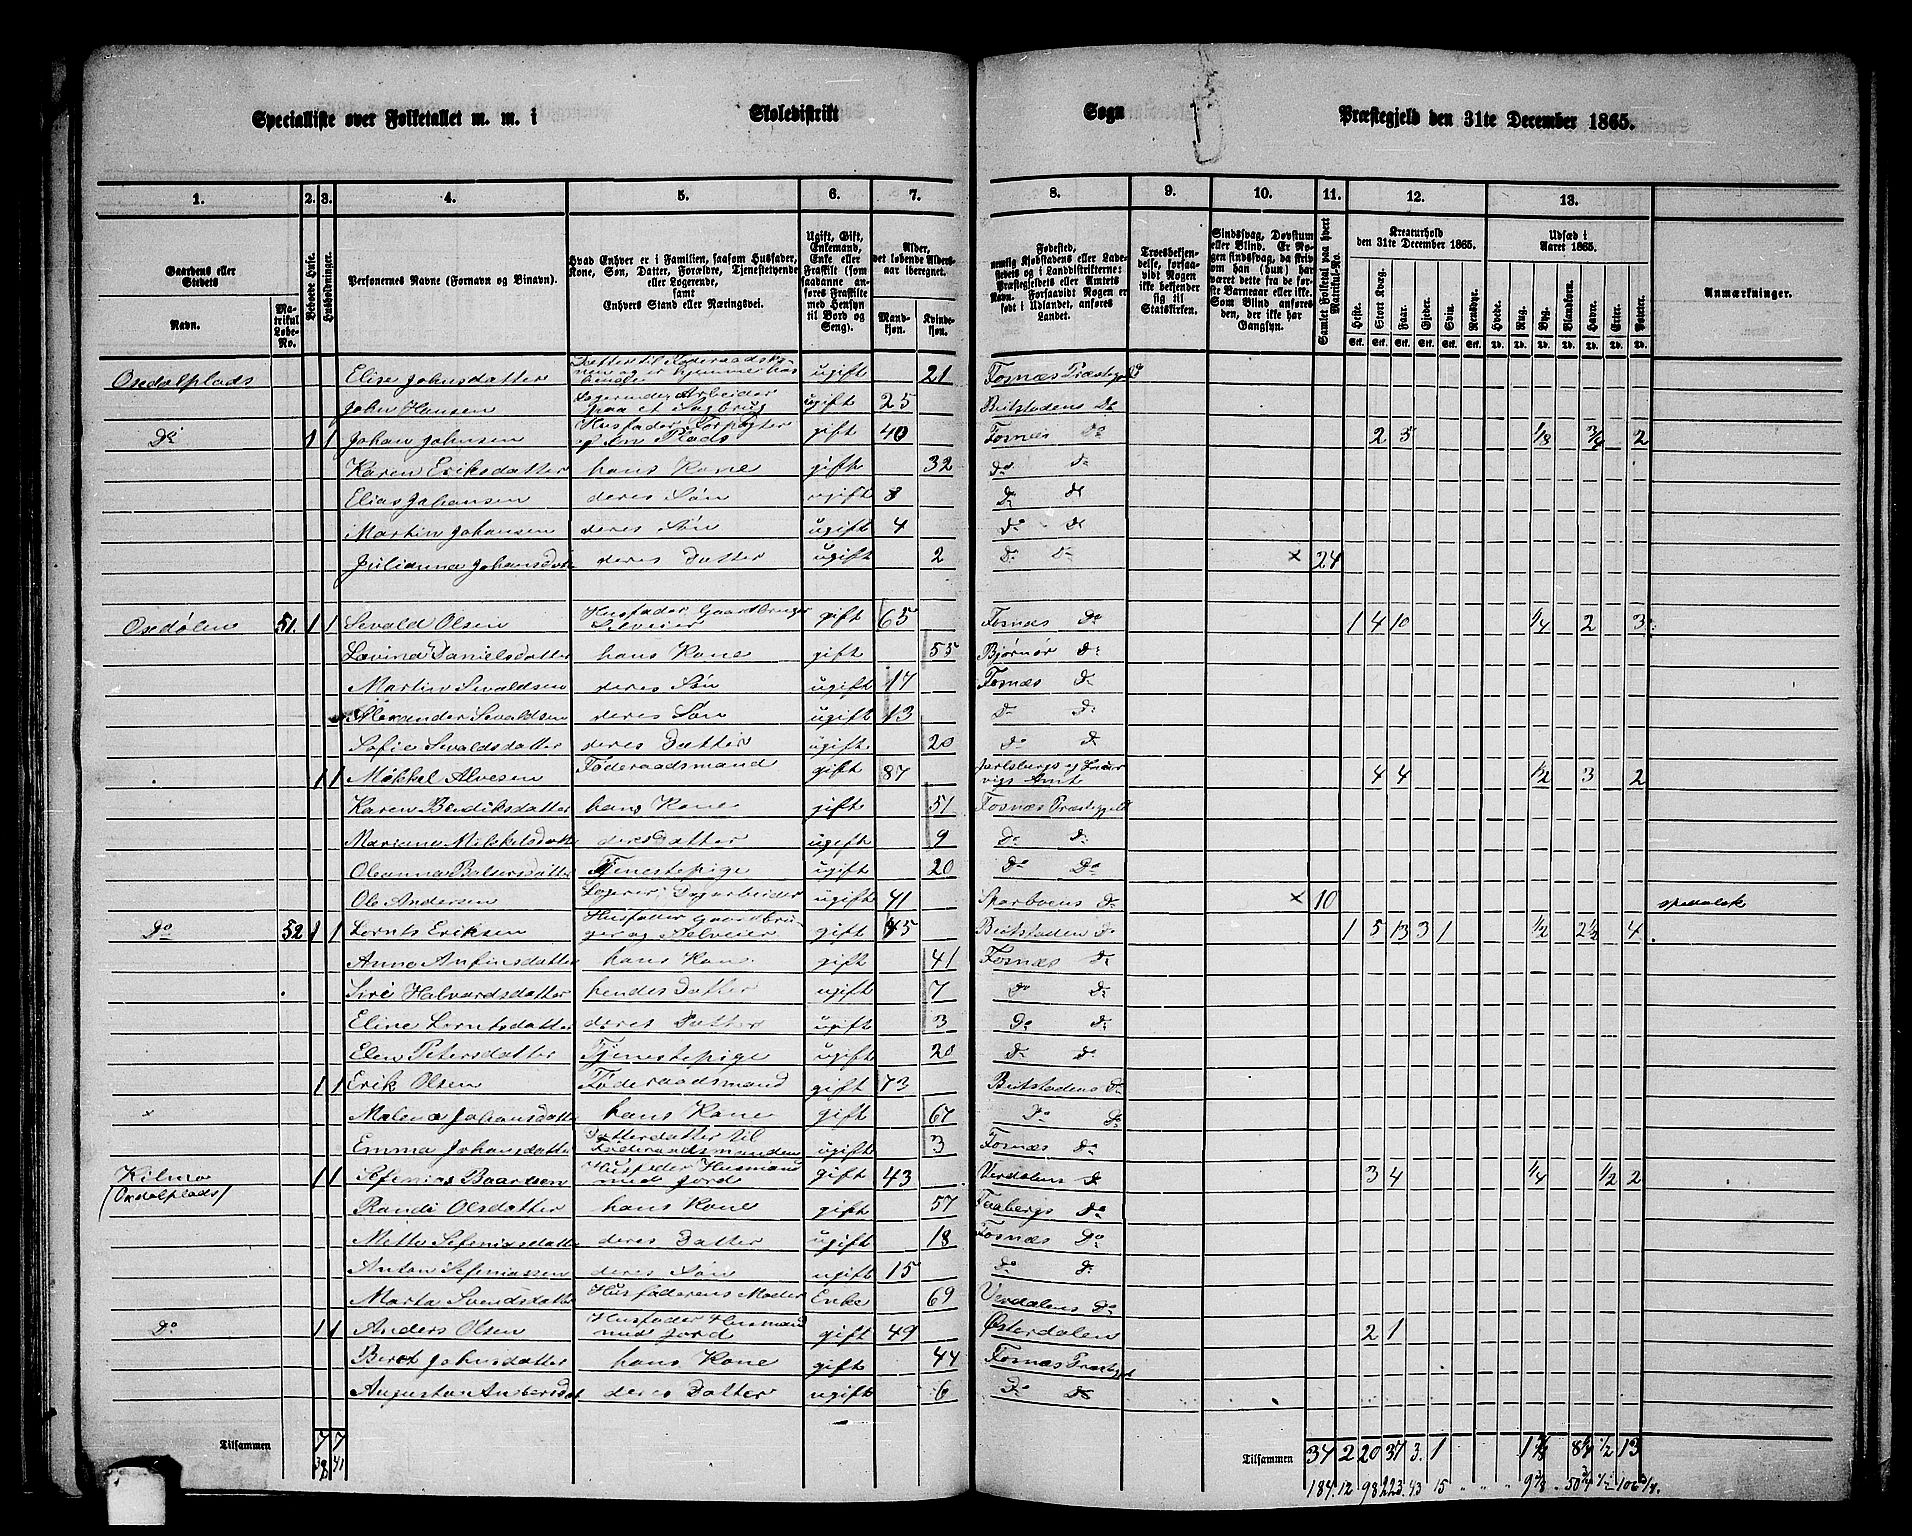 Specialliste over Folketallet m. m. i Skoledistrikt Sogn Præstegjeld den 31te December 1865.
1. 2. 3. 4. 5. 6. 7. 8. 9. 10. 11. 12. 13.
Gaardens eller Stedets
Navn.
Matrikul Løbe-No.
Beboede Huse.
Husholdninger.
Personernes Navne (Fornavn og Binavn).
Hvad Enhver er i Familien, saasom Husfader, Kone, Søn, Datter, Forældre, Tjenestetyende eller Logerende, samt Enhvers Stand eller Næringsvei.
Ugift, Gift, Enkemand, Enke eller Fraskilt (som saadanne anføres Fraskilte med Hensyn til Bord og Seng).
Alder, det løbende Aldersaar iberegnet.
Mandkjøn. Kvindekjøn.
Fødested,
Sindssvag, Døvstum eller Blind.
Samlet Folketal paa hvert Matrikul-No.
Kreaturhold den 31te December 1865.
Heste. Stort Kvæg. Faar. Gjeder. Svin. Rensdyr.
Udsæd i Aaret 1865.
Hvede. Rug. Byg. Blandkorn. Havre. Erter. Poteter.
Anmærkninger.
Osedalplads Elise Johnsdatter ugift 21 Fosnæs Præstegjeld
John Hansen Logerende Arbeider paa et Sagbrug ugift 25 Beitstadens Do
Do 1 1 Johan Johnsen Husfader Forpagter af en Plads gift 40 Fosnæs Do 2 5 1/8 3/4 2
Karen Eriksdatter hans Kone gift 32 Do Do
Elias Johansen deres Søn ugift 8 Do Do
Martin Johansen deres Søn ugift 4 Do Do
Julianna Johansdat deres Datter ugift 2 Do Do × 24
Osedølen 51. 1 1 Sevald Olsen Husfader Gaardbruger Selveier gift 65 Fosnæs Do 1 4 10 1/4 2 3
Lovina Danielsdatter hans Kone gift 55 Bjørnør Do
Martin Sevaldsen deres Søn ugift 17 Fosnæs Do
Alexander Sevaldsen deres Søn ugift 13 Do Do
Sofie Sevaldsdatter deres Datter ugift 20 Do Do
1 1 Mikkal Alvesen Føderaadsmand gift 87 Jarlsbergs og Laurvigs Amt 4 4 1/2 3 2
Karen Bendiksdatter hans Kone gift 51 Fosnæs Præstegjeld
Mariane Mikkelsdatte deres Datter ugift 9 Do Do
Oleanna Baltsersdatter Tjenestepige ugift 20 Do Do
Ole Andersen Logerer Dagarbeider ugift 41 Sparboens Do × 10 spedalsk
Do 52 1 1 Lornts Eriksen Husfader Gaardbruger og Selveier gift 45 Beitstaden Do 1 5 13 3 1 1/2 2 1/2 4
Anna Anfinsdatter hans Kone gift 41 Fosnæs Do
Siri Halvardsdatter hendes Datter ugift 7 Do Do
Eline Lorntsdatter deres Datter ugift 3 Do Do
Elen Petersdatter Tjenestepige ugift 20 Do Do
1 1 Erik Olsen Føderaadsmand gift 73 Beitstadens Do
Malena Johansdatter hans Kone gift 67 Do Do
Emma Johansdatter Datterdatter til Føderaadsmanden ugift 3 Fosnæs Do
Kilmo 1 1 Sefenias Baardsen Husfader Husmand med Jord gift 43 Verdalens Do 3 4 1/4 1/2 2
(Osdalplads) Randi Olsdatter hans Kone gift 57 Faabergs Do
Mette Sefeniasdatter deres Datter ugift 18 Fosnæs Do
Anton Sefeniassen deres Søn ugift 15 Do Do
Marta Svendsdatter Husfaderens Moder Enke 69 Verdalens Do
Do 1 1 Anders Olsen Husfader Husmand med Jord gift 49 Østerdalen 2 1
Beret Johnsdatter hans Kone gift 44 Fosnæs Præstegjd
Augusta Andersdat deres Datter ugift 6 Do Do
Tilsammen 7 7 Tilsammen 34 2 20 37 3. 1 13
38 41 184. 12 98 223. 43 15